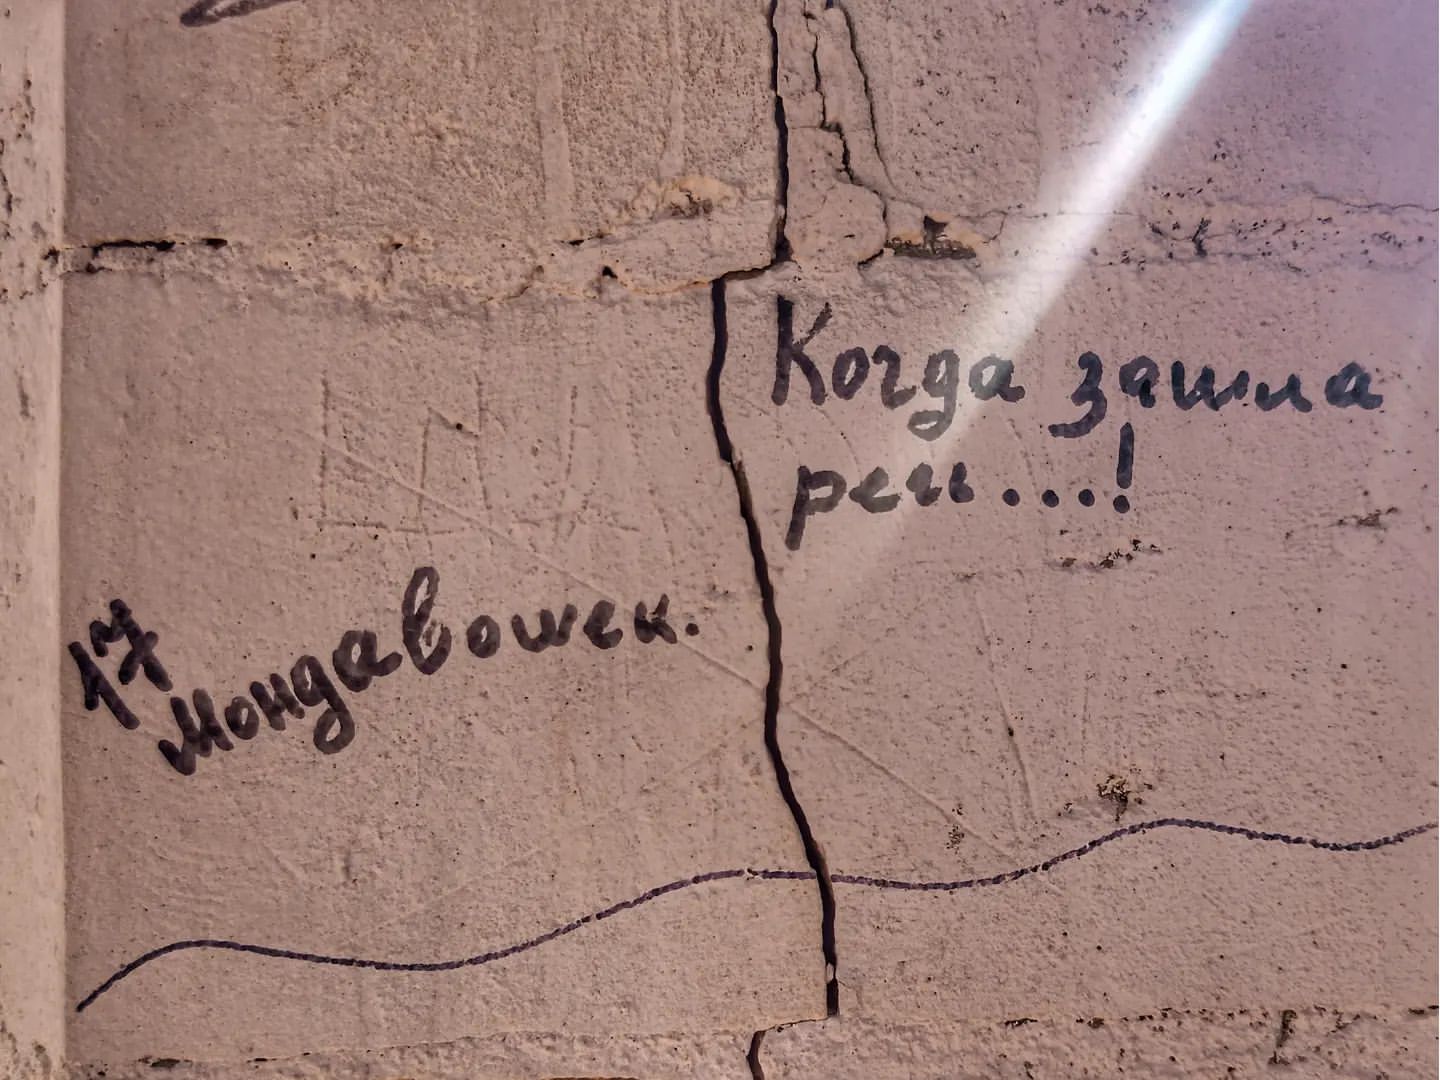 Когда зашла
речь....!
17
мондавошек.